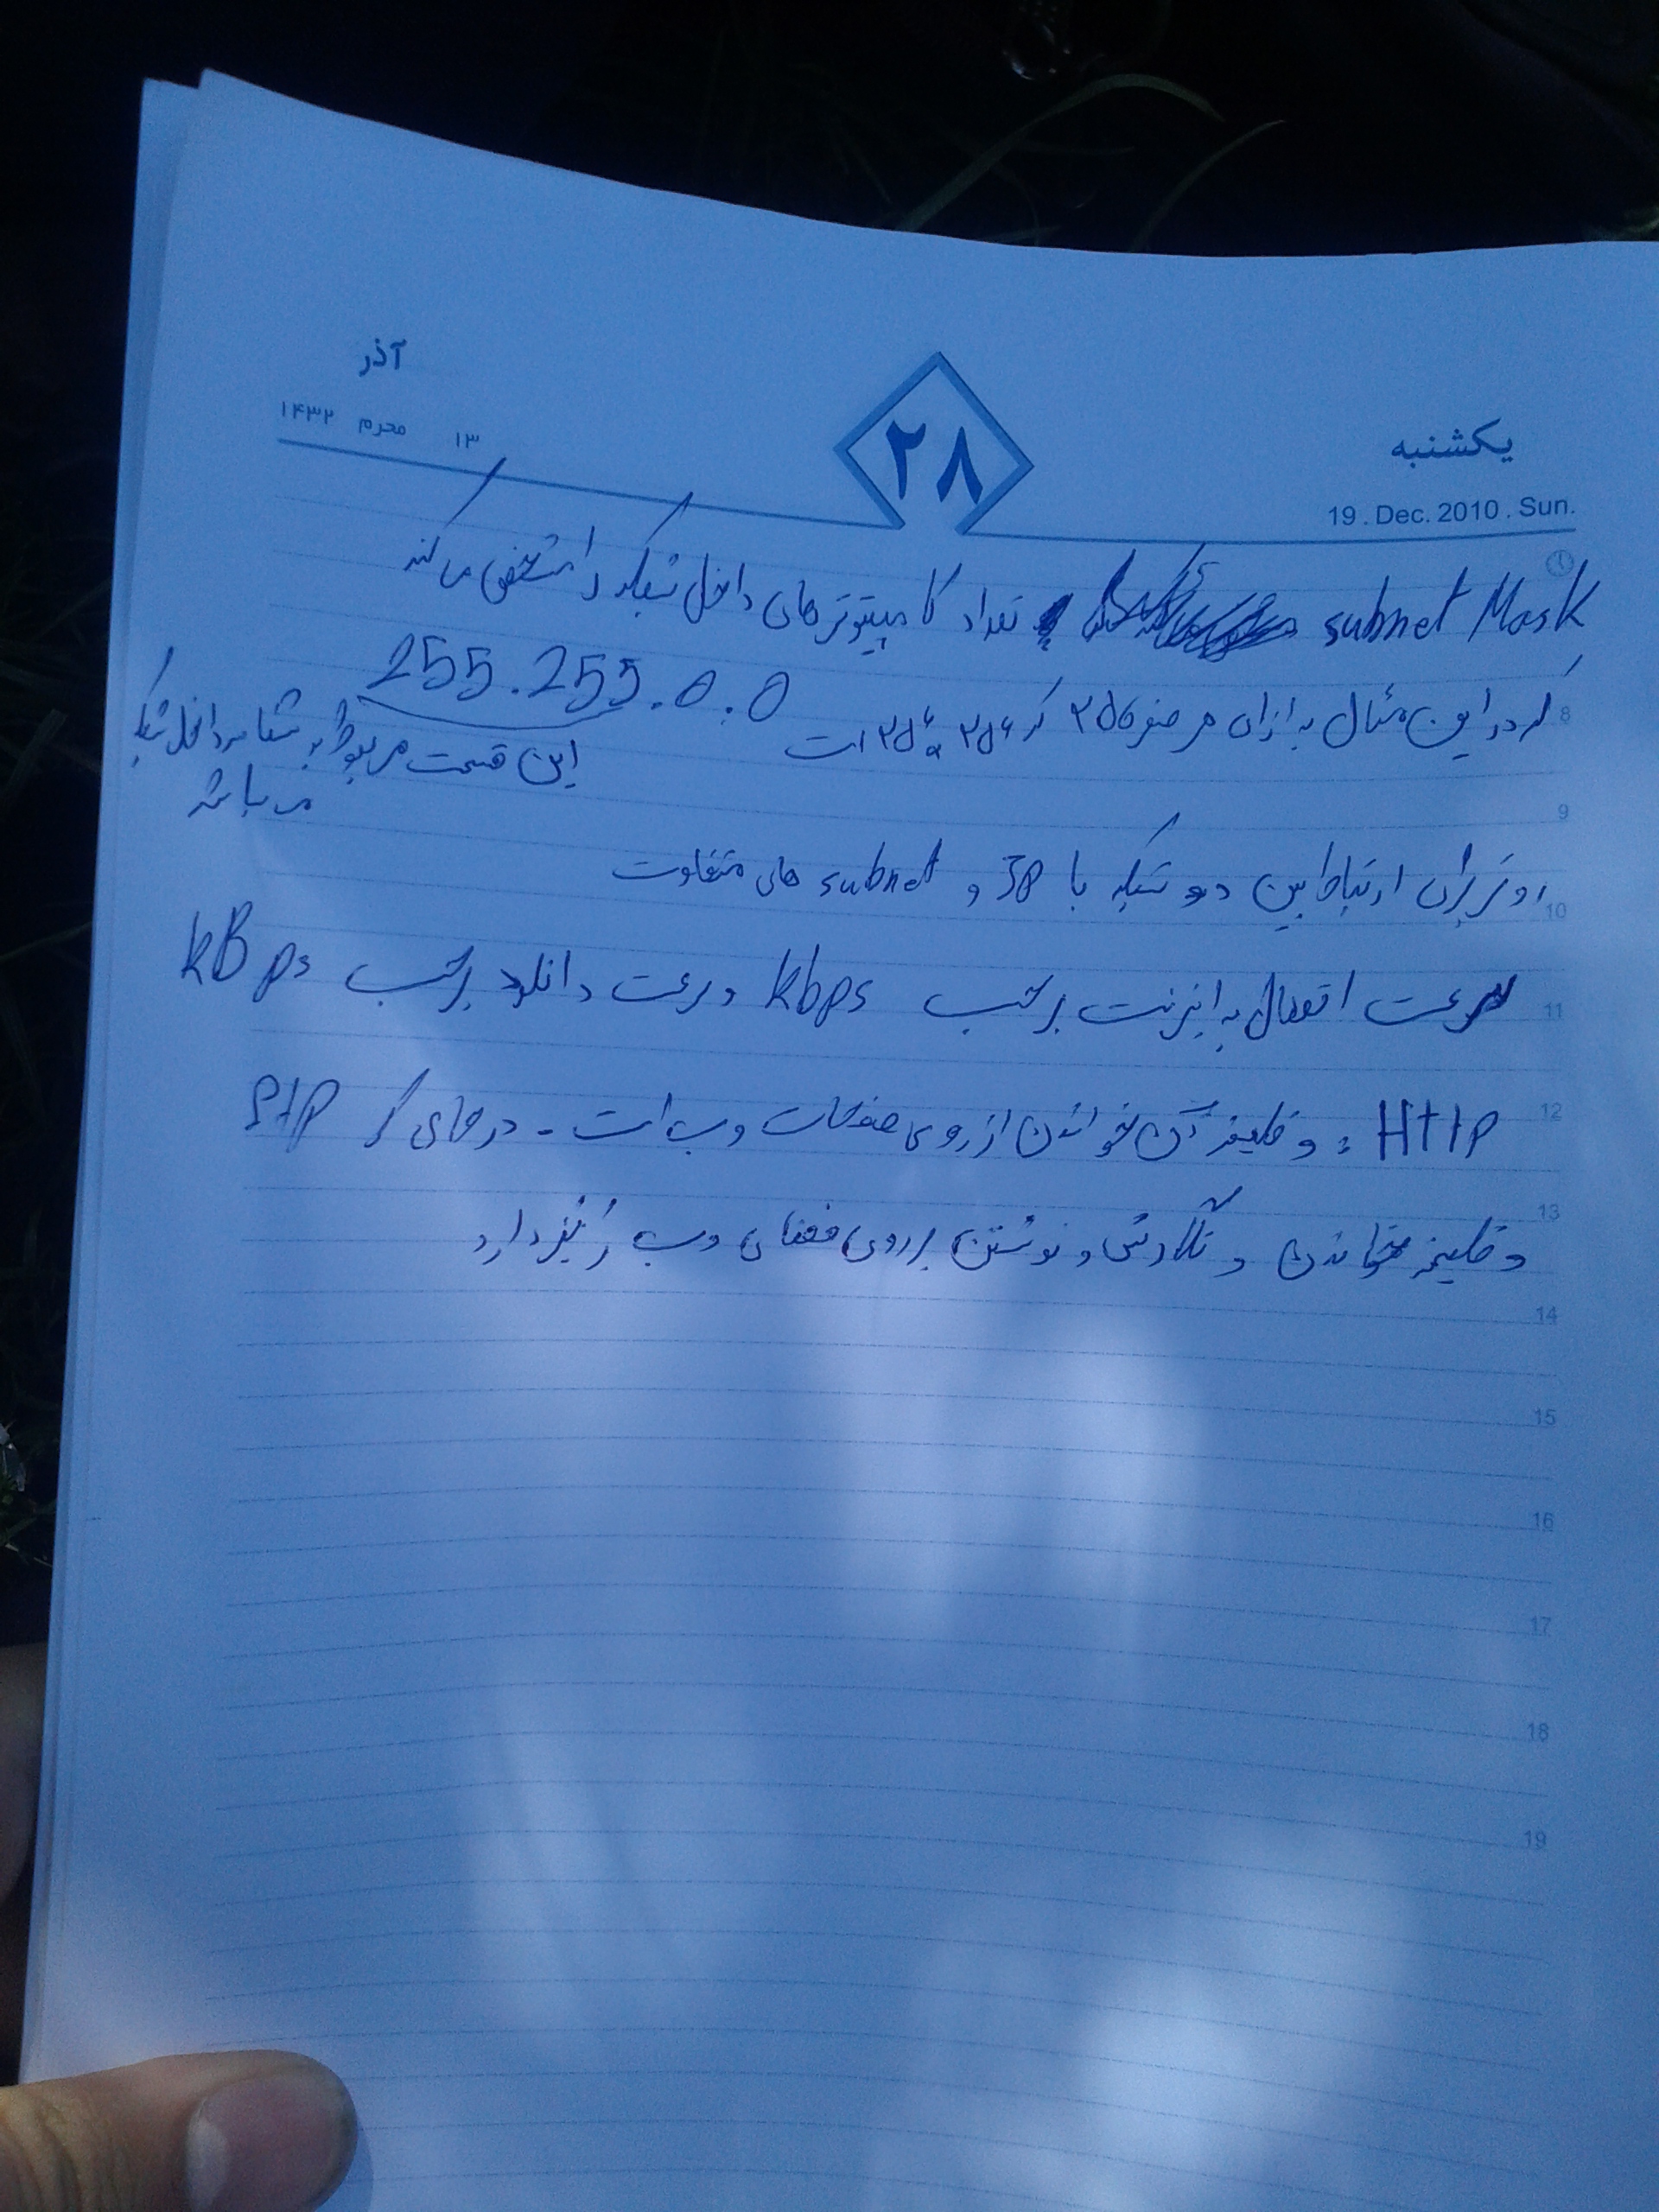 آذر
۱۳ محرم ۱۴۳۲
۲۸
یکشنبه
19.Dec.2010.Sun.
subnet Mask تعداد کامپیوترهای داخل شبکه را مشخص می کند
255.255.0.0
که در این مثال به ازای هر صفر ۲۵۶ که ۲۵۶ * ۲۵۶ است
این قسمت مربوط به شما در داخل شبکه
می باشد
روتر برای ارتباط بین دو شبکه با IP و subnet های متفاوت
سرعت اتصال به اینترنت برحسب kbps و سرعت دانلود برحسب kBps
HttP : وظیفه آن خواندن از روی صفحات وب است - در حالی که FtP
وظیفه خواندن و نگارش و نوشتن بر روی فضای وب را نیز دارد
8
9
10
11
12
13
14
15
16
17
18
19